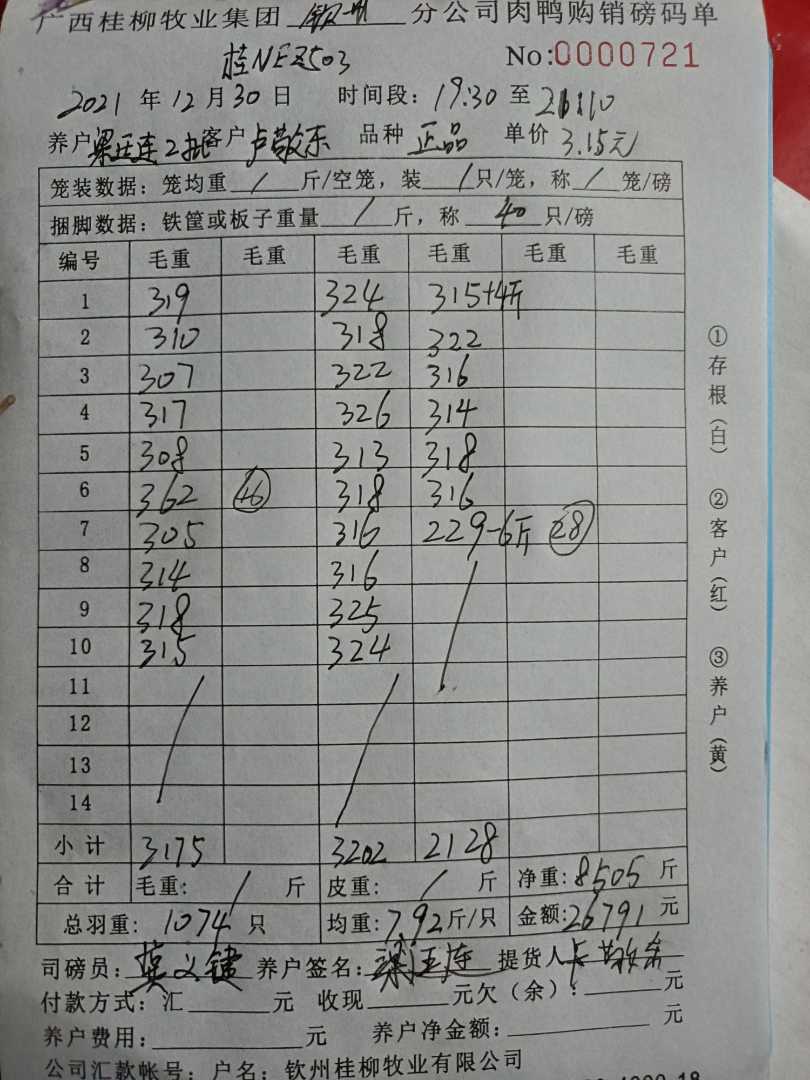 广西桂柳牧业集团 钦州 分公司肉鸭购销磅码单
桂NEZ503 No:0000721
2021 年 12 月 30 日 时间段: 19:30 至 21:10
养户 梁廷连2批 客户 卢敬东 品种 正品 单价 3.15元
笼装数据: 笼均重 / 斤/空笼, 装 / 只/笼, 称 / 笼/磅
捆脚数据: 铁筐或板子重量 / 斤, 称 40 只/磅
编号 毛重 毛重 毛重 毛重 毛重 毛重
1 319 324 315+4斤
2 310 318 322
3 307 322 316
4 317 326 314
5 308 313 318
6 362 46 318 316
7 305 316 229-6斤 28
8 314 316
9 318 325
10 315 324
11
12
13
14
小计 3175 3202 2128
合计 毛重: / 斤 皮重: / 斤 净重: 8505 斤
总羽重: 1074 只 均重: 7.92 斤/只 金额: 26791 元
司磅员: 莫义键 养户签名: 梁廷连 提货人 卢敬东
付款方式: 汇 元 收现 元欠(余): 元
养户费用: 元 养户净金额: 元
公司汇款帐号: 户名: 钦州桂柳牧业有限公司
①存根(白) ②客户(红) ③养户(黄)